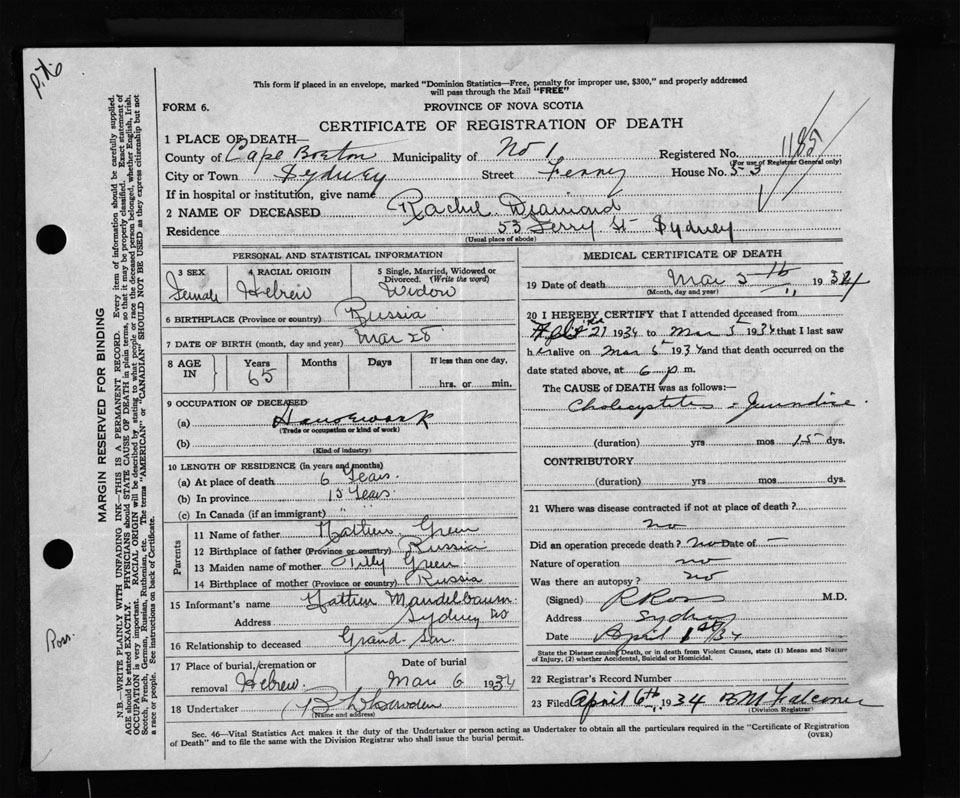 This form if placed in an envelope, marked "Dominion Statistics—Free, penalty for improper use, $300," and properly addressed
will pass through the Mail "FREE"
FORM 6.
PROVINCE OF NOVA SCOTIA
CERTIFICATE OF REGISTRATION OF DEATH
1 PLACE OF DEATH—
County of Cape Breton Municipality of No 1 Registered No. 1185
(For use of Registrar General only)
City or Town Sydney Street Ferry House No. 53
If in hospital or institution, give name
2 NAME OF DECEASED Rachel Diamond
Residence 53 Ferry St Sydney
(Usual place of abode)
PERSONAL AND STATISTICAL INFORMATION
3 SEX 4 RACIAL ORIGIN 5 Single, Married, Widowed or Divorced. (Write the word)
Female Hebrew Widow
6 BIRTHPLACE (Province or country) Russia
7 DATE OF BIRTH (month, day and year) Mar 28
8 AGE IN Years Months Days If less than one day,
65 hrs. or min.
9 OCCUPATION OF DECEASED
(a) Housework
(Trade or occupation or kind of work)
(b)
(Kind of industry)
10 LENGTH OF RESIDENCE (in years and months)
(a) At place of death 6 Years
(b) In province 15 Years
(c) In Canada (if an immigrant) " "
Parents
11 Name of father Green
12 Birthplace of father (Province or country) Russia
13 Maiden name of mother Tilly Green
14 Birthplace of mother (Province or country) Russia
15 Informant's name Mandelbaum
Address Sydney NS
16 Relationship to deceased Grand Son
17 Place of burial, cremation or removal Hebrew
Date of burial Mar 6 1934
18 Undertaker
(Name and address)
MEDICAL CERTIFICATE OF DEATH
19 Date of death Mar 5th 1934
(Month, day and year)
20 I HEREBY CERTIFY that I attended deceased from
21 1934 to Mar 5 1934 that I last saw
her alive on Mar 5 1934 and that death occurred on
date stated above, at 6 p. m.
The CAUSE of DEATH was as follows:—
Cholecystitis = Jaundice
(duration) yrs mos 15 dys.
CONTRIBUTORY
(duration) yrs mos dys.
21 Where was disease contracted if not at place of death?
no
Did an operation precede death? no Date of —
Nature of operation no
Was there an autopsy? no
(Signed) R Ross M.D.
Address Sydney
Date April 1st/34
State the Disease causing Death, or in death from Violent Causes, state (1) Means and Nature
of Injury, (2) whether Accidental, Suicidal or Homicidal.
22 Registrar's Record Number
23 Filed April 6th, 1934 Falconer
(Division Registrar)
Sec. 46—Vital Statistics Act makes it the duty of the Undertaker or person acting as Undertaker to obtain all the particulars required in the "Certificate of Registration
of Death" and to file the same with the Division Registrar who shall issue the burial permit.
(OVER)
MARGIN RESERVED FOR BINDING
N.B.—WRITE PLAINLY WITH UNFADING INK—THIS IS A PERMANENT RECORD. Every item of information should be carefully supplied.
AGE should be stated EXACTLY. PHYSICIANS should STATE CAUSE OF DEATH in plain terms, so that it may be properly classified. Exact statement of
OCCUPATION is very important. RACIAL ORIGIN will be described by stating to what people or race the deceased person belonged, whether English, Irish,
Scotch, French, German, Russian, Ruthenian, etc. The terms "AMERICAN" or "CANADIAN" SHOULD NOT BE USED as they express citizenship but not
a race or people. See instructions on back of Certificate.
Ross.